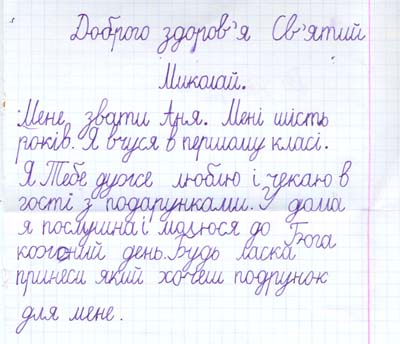 Доброго здоров'я Св'ятий
Миколай.
Мене звати Аня. Мені шість
років. Я вчуся в першому класі.
Я Тебе дуже люблю і чекаю в
гості з подарунками. У дома
я послушна і молюся до Бога
кожний день. Будь ласка
принеси який хочеш подрунок
для мене.